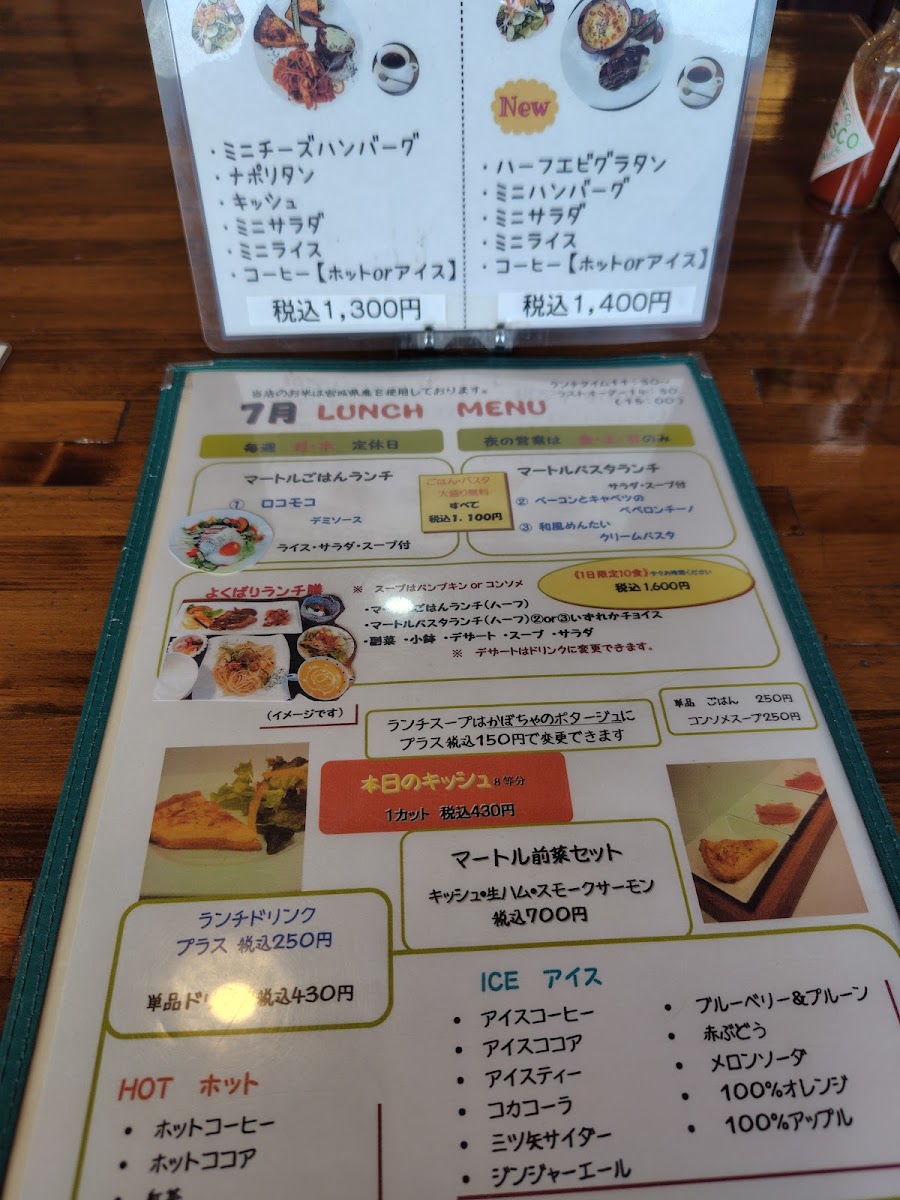 New
・ミニチーズハンバーグ
・ナポリタン
・キッシュ
・ミニサラダ
・ミニライス
・コーヒー【ホットorアイス】
税込1,300円
・ハーフエビグラタン
・ミニハンバーグ
・ミニサラダ
・ミニライス
・コーヒー【ホットorアイス】
税込1,400円
SCO
当店のお米は宮城県産を使用しております。
ランチタイム11:30~
ラストオーダー14:30
(15:00)
7月 LUNCH MENU
毎週 定休日
夜の営業は 金・土・日のみ
マートルごはんランチ
① ロコモコ
デミソース
ライス・サラダ・スープ付
ごはん・パスタ
大盛り無料
すべて
税込1,100円
マートルパスタランチ
サラダ・スープ付
② ベーコンとキャベツの
ペペロンチーノ
③ 和風めんたい
クリームパスタ
よくばりランチ膳
※ スープはパンプキン or コンソメ
《1日限定10食》少々お時間ください
税込1,600円
・マートルごはんランチ(ハーフ)
・マートルパスタランチ(ハーフ)②or③いずれかチョイス
・副菜 ・小鉢 ・デザート ・スープ ・サラダ
※ デザートはドリンクに変更できます。
(イメージです)
ランチスープはかぼちゃのポタージュに
プラス税込150円で変更できます
単品 ごはん 250円
コンソメスープ250円
本日のキッシュ 8等分
1カット 税込430円
マートル前菜セット
キッシュ・生ハム・スモークサーモン
税込700円
ランチドリンク
プラス 税込250円
単品ドリ 税込430円
HOT ホット
• ホットコーヒー
• ホットココア
ICE アイス
• アイスコーヒー
• アイスココア
• アイスティー
• コカコーラ
• 三ツ矢サイダー
• ジンジャーエール
• ブルーベリー&プルーン
• 赤ぶどう
• メロンソーダ
• 100%オレンジ
• 100%アップル